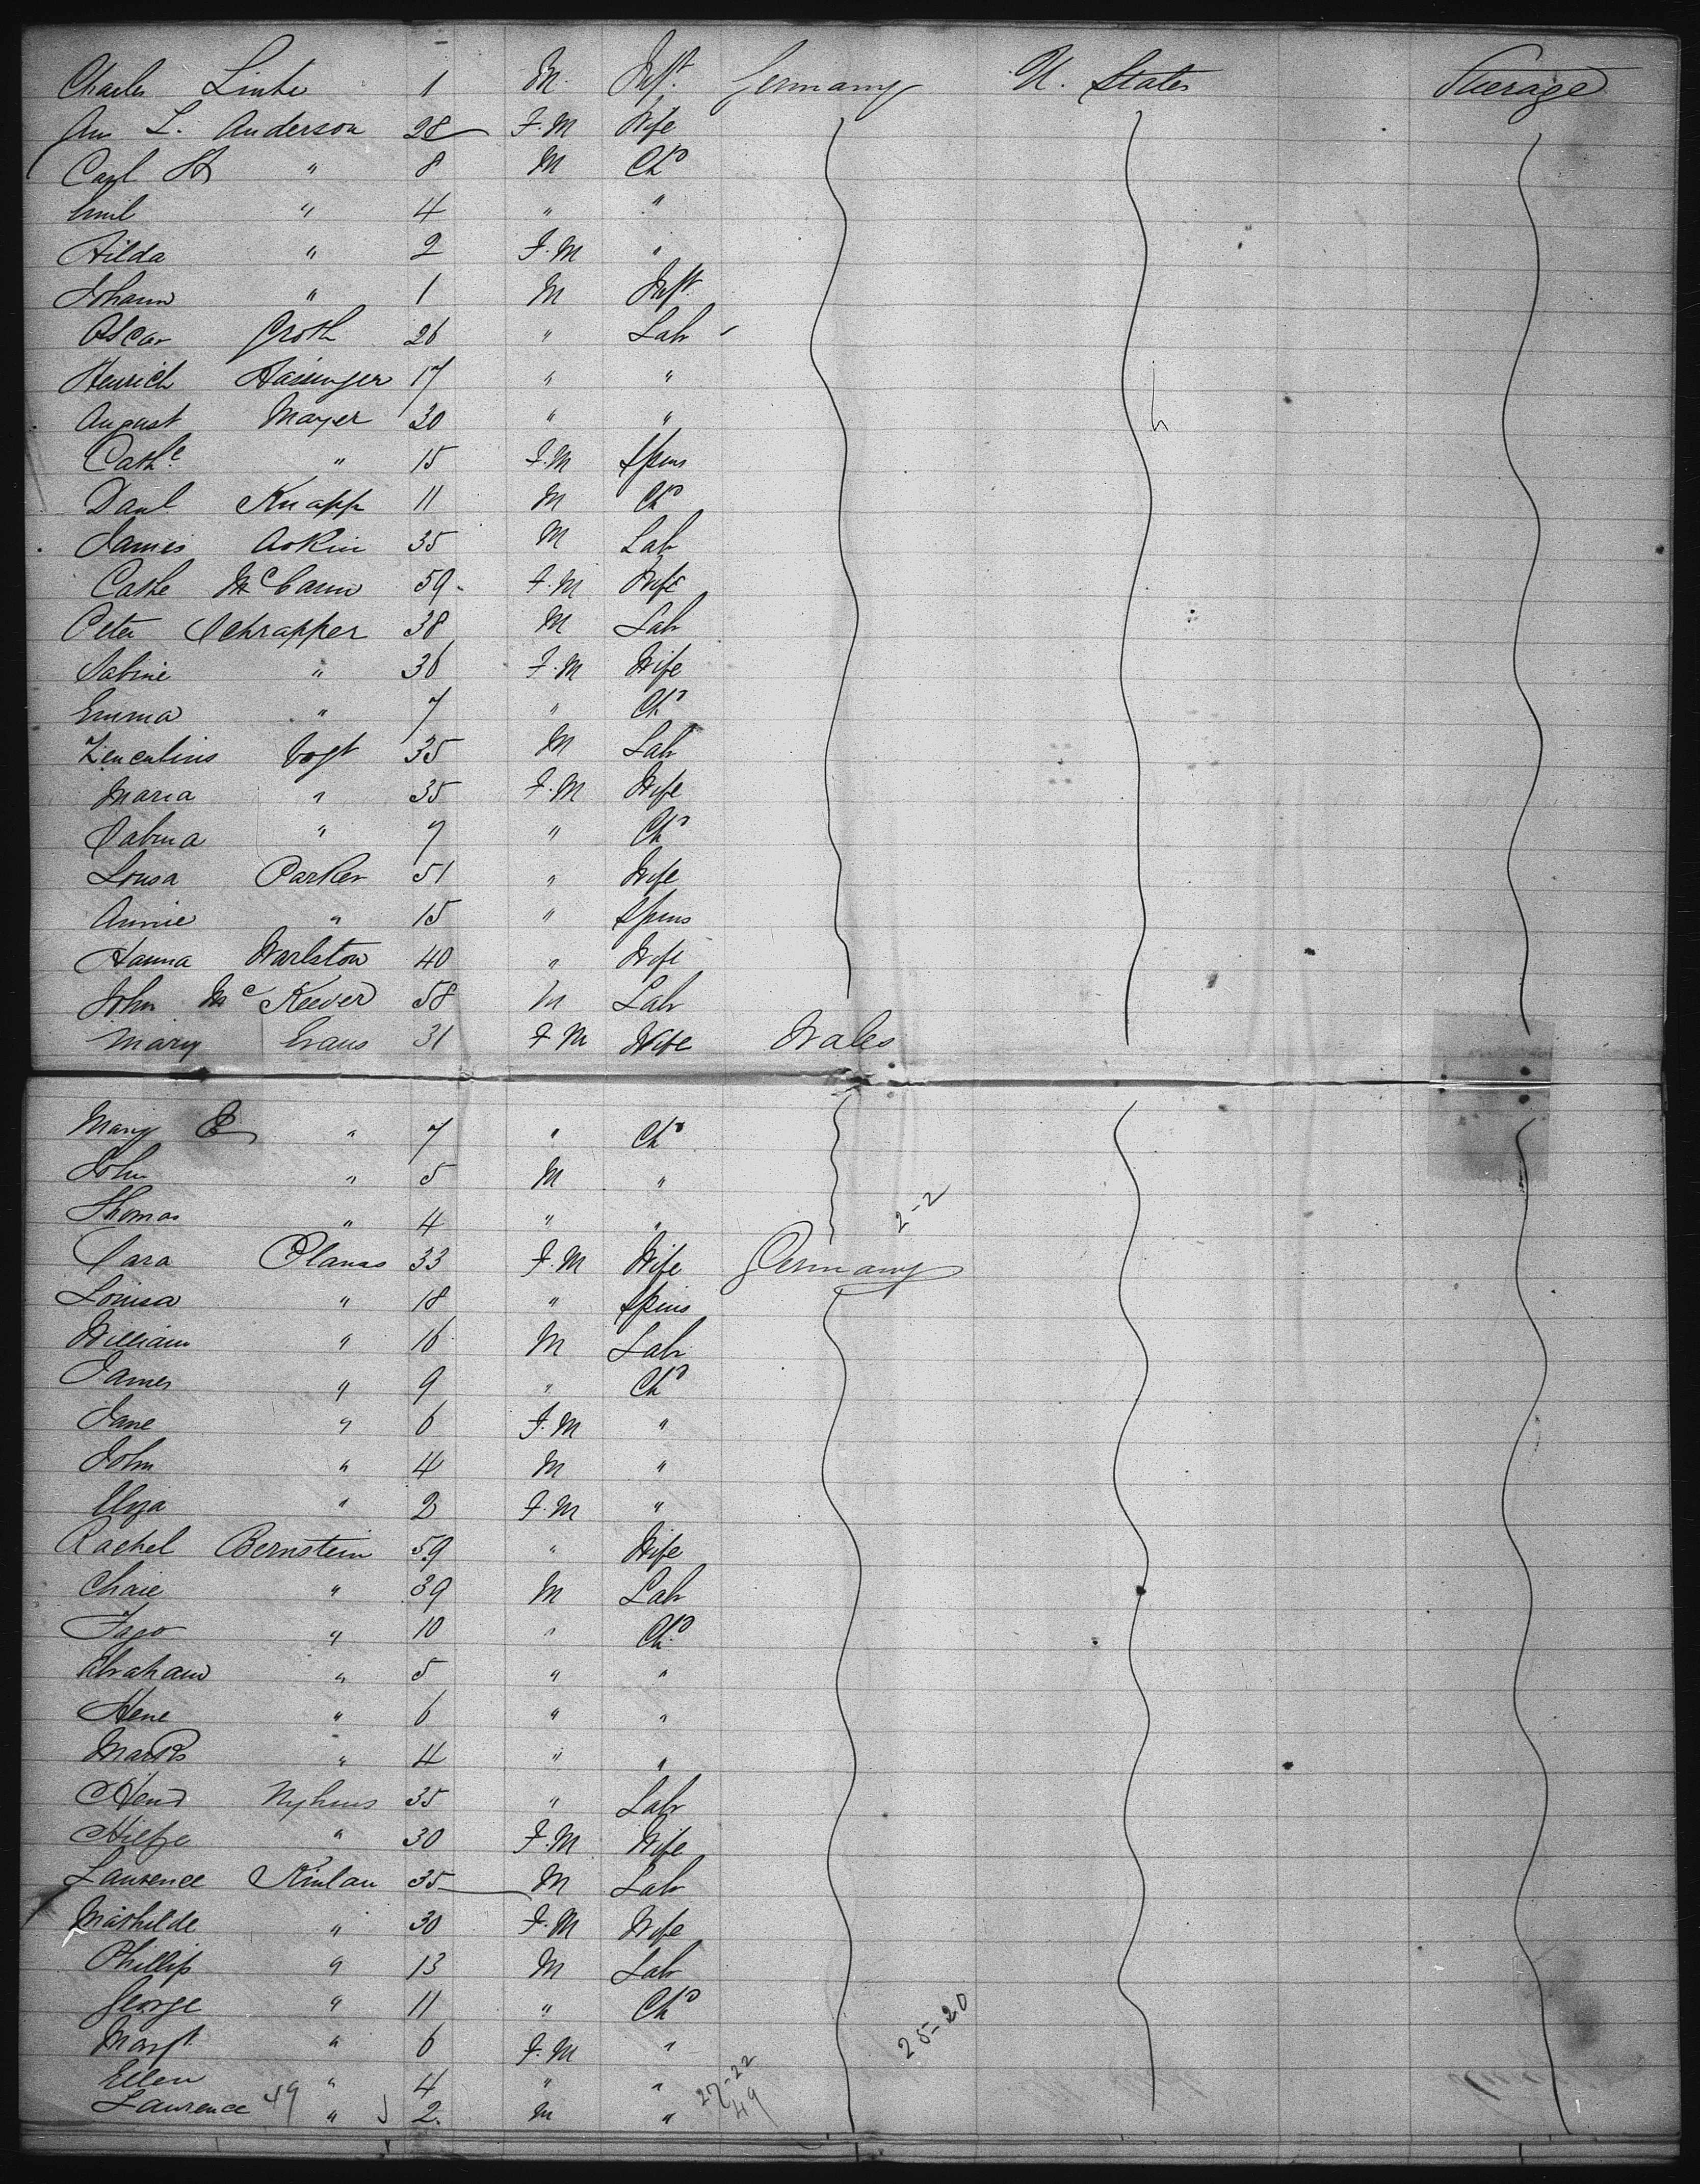 Charles Linke 1 M. Inft. Germany U. States Steerage
Ann L. Anderson 28 F.M Wife
Carl H " 8 M Chd
Emil " 4 " "
Hilda " 2 F.M "
Johann " 1 M Inft
Oscar Groth 26 " Labr
Henrich Hassinger 17 " "
August Mayer 30 " "
Cathe " 15 F.M Spins
Danl Knapp 11 M Chd
James Askin 35 M Lab
Cathe McCann 59 F.M Wife
Peter Schrapper 38 M Lab
Sabine " 36 F.M Wife
Emma " 7 " Chd
Vogt 35 M Lab
Maria " 35 F.M Wife
Sabina " 7 " Chd
Lousa Parker 51 " Wife
Annie " 15 " Spins
Hanna Warlston 40 " Wife
John McKeever 58 M Lab
Mary Evans 31 F M Wife Wales
Mary E " 7 " Chd
John " 5 M "
Thomas " 4 " " 2-2
Sara 33 F.M Wife Germany
Louisa " 18 " Spins
William " 16 M Lab
James " 9 " Chd
Jane " 6 F.M "
John " 4 M "
Eliza " 2 F.M "
Rachel Bernstein 59 " Wife
Chaie " 39 M Lab
" 10 " Chd
Abraham " 5 " "
Hene " 6 " "
Marks " 4 " "
Nyhuis 35 " Lab
" 30 F.M Wife
Laurence 35 M Lab
Mathilde " 30 F.M Wife
Phillip " 13 M Lab
George " 11 " Chd
Margt " 6 F.M " 25-20
Ellen " 4 " " 27-22
Laurence 49 " 2. M " 49